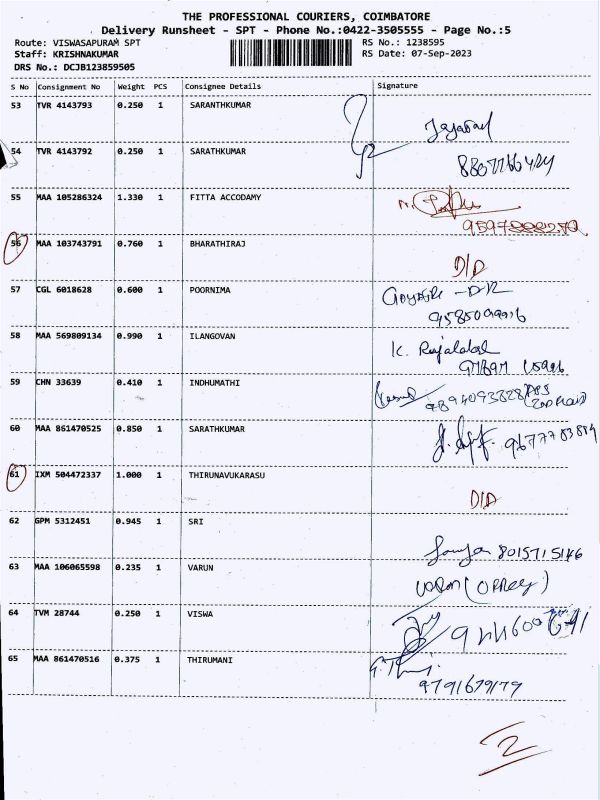 THE PROFESSIONAL COURIERS, COIMBATORE
Delivery Runsheet - SPT - Phone No.:0422-3505555 - Page No.:5
Route: VISWASAPURAM SPT RS No.: 1238595
Staff: KRISHNAKUMAR RS Date: 07-Sep-2023
DRS No.: DCJB123859505
S No Consignment No Weight PCS Consignee Details Signature
53 TVR 4143793 0.250 1 SARANTHKUMAR
54 TVR 4143792 0.250 1 SARATHKUMAR
55 MAA 105286324 1.330 1 FITTA ACCODAMY
56 MAA 103743791 0.760 1 BHARATHIRAJ
D/D
57 CGL 6018628 0.600 1 POORNIMA
58 MAA 569809134 0.990 1 ILANGOVAN
K.
59 CHN 33639 0.410 1 INDHUMATHI
60 MAA 861470525 0.850 1 SARATHKUMAR
61 IXM 504472337 1.000 1 THIRUNAVUKARASU
D/D
62 GPM 5312451 0.945 1 SRI
8015715146
63 MAA 106065598 0.235 1 VARUN
64 TVM 28744 0.250 1 VISWA
65 MAA 861470516 0.375 1 THIRUMANI
9791679179
2